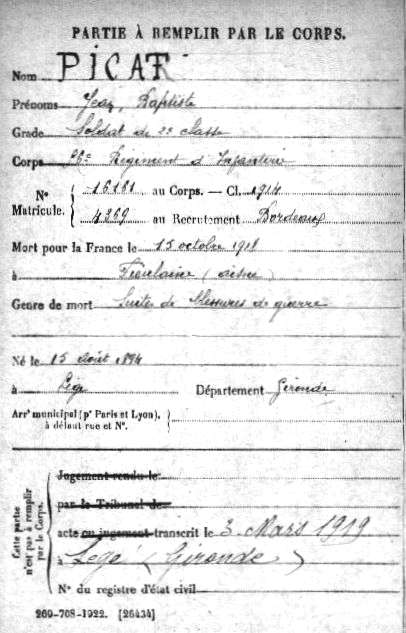 PARTIE À REMPLIR PAR LE CORPS.
Nom PICAT
Prénoms Jean, Baptiste
Grade Soldat de 2e classe
Corps Régiment d'Infanterie
N° Matricule. 16161 au Corps. — Cl. 1914
4269 au Recrutement Bordeaux
Mort pour la France le 15 octobre 1918
à (aisne)
Genre de mort Suites de blessures de guerre
Né le 15 août 1894
à Lège Département Gironde
Arrt municipal (pr Paris et Lyon),
à défaut rue et N°.
Cette partie n'est pas à remplir par le Corps.
Jugement rendu le
par le Tribunal de
acte ou jugement transcrit le 3 Mars 1919
à Lège (Gironde)
N° du registre d'état civil
269-708-1922. [26434]